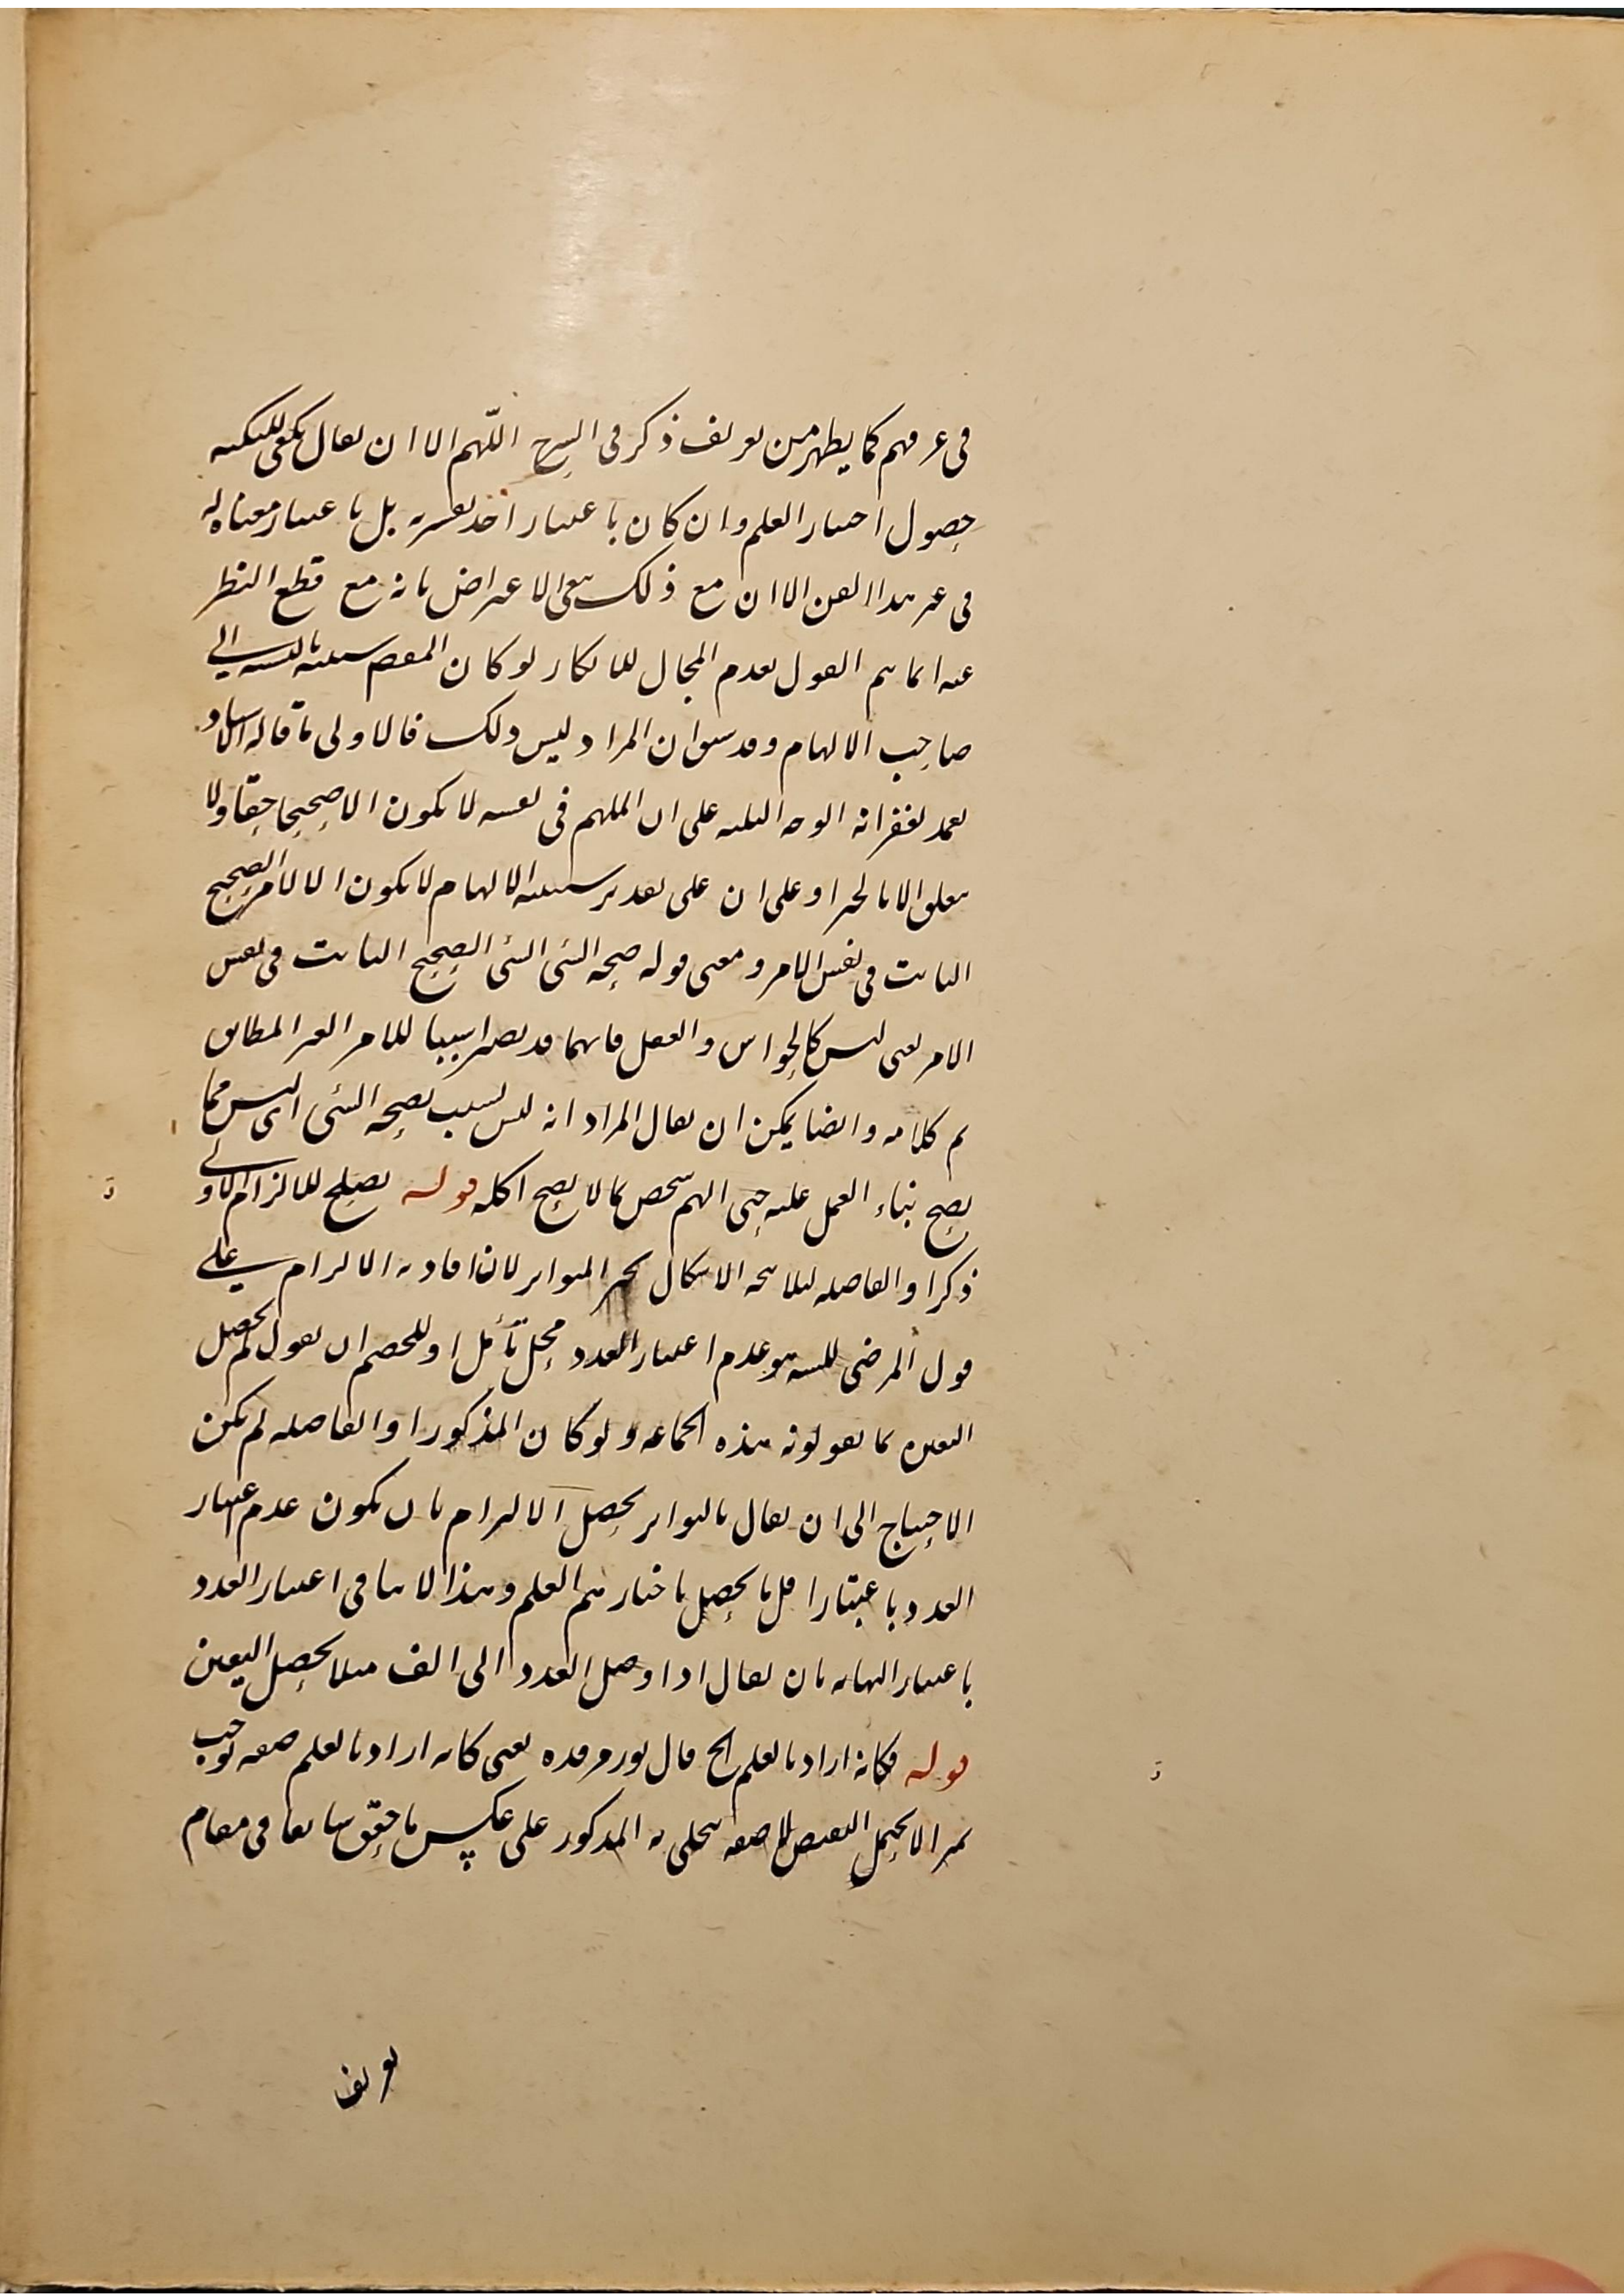 في عرفهم كما يظهر من تعريف ذكر في الشرح اللّهم الا ان يقال يكفي للنكتة
حصول اختيار العلم وان كان باعتبار اخذ تفسيره بل باعتبار معناه له
في غير هذا الفن الا ان مع ذلك بقي الاعتراض بانه مع قطع النظر
عنه انما يتم القول بعدم المجال للانكار لو كان المقصم سببيته بالنسبة الى
صاحب الالهام وقد سبق ان المراد ليس ذلك فالاولى ما قاله الاستاد
تغمد بغفرانه الوجه التنبيه على ان الملهم في نفسه لا يكون الا صحيحا حقا ولا
يتعلق الا بالخير او على ان على تقدير سببية الالهام لا يكون الا للامر الصحيح
الثابت في نفس الامر ومعنى قوله صحة الشئ الشئ الصحيح الثابت في نفس
الامر يعني ليس كالحواس والعقل فانهما قد يصيرا سببا للامر الغير المطابق
تم كلامه وايضا يمكن ان يقال المراد انه ليس بسبب بصحة الشئ اى ليس مما
يصح بناء العمل عليه حتى الهم شخص بما لا يصح اكله قوله يصلح للالزام الاولى
ذكر او الفاصلة لئلا يتجه الاشكال بخبر المتواتر لان افادته الالزام على
قول المرضى للسنة هو عدم اعتبار العدد محل تأمل اذ للخصم ان يقول لم يحصل
اليقين بما يقولونه هذه الجماعة ولو كان المذكور او الفاصلة لم يكن
الاحتياج الى ان يقال بالتواتر يحصل الالزام بان يكون عدم اعتبار
العدد باعتبار اقل ما يحصل باخبارهم العلم وهذا لا ينافي اعتبار العدد
باعتبار النهاية بان يقال اذا وصل العدد الى الف مثلا يحصل اليقين
قوله فكانه اراد بالعلم الخ قال نور مرقده يعني كانه اراد بالعلم صفة توجب
تميزا لا يحتمل النقيض لا صفة يتجلى به المذكور على عكس ما حقق سابقا في مقام
تعريف